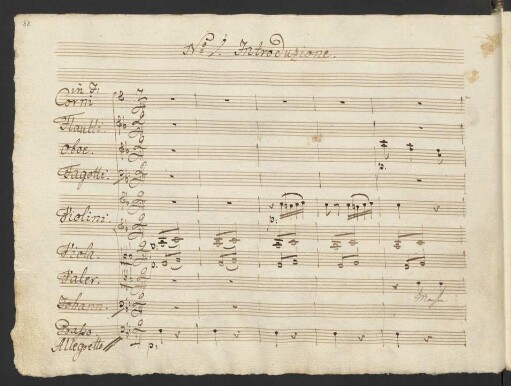 Nº 1. Introduzione.
in F:
Corni
Flautti.
Oboe.
Fagotti.
Violini
Viola.
Valer.
Johann.
Basso.
Allegretto